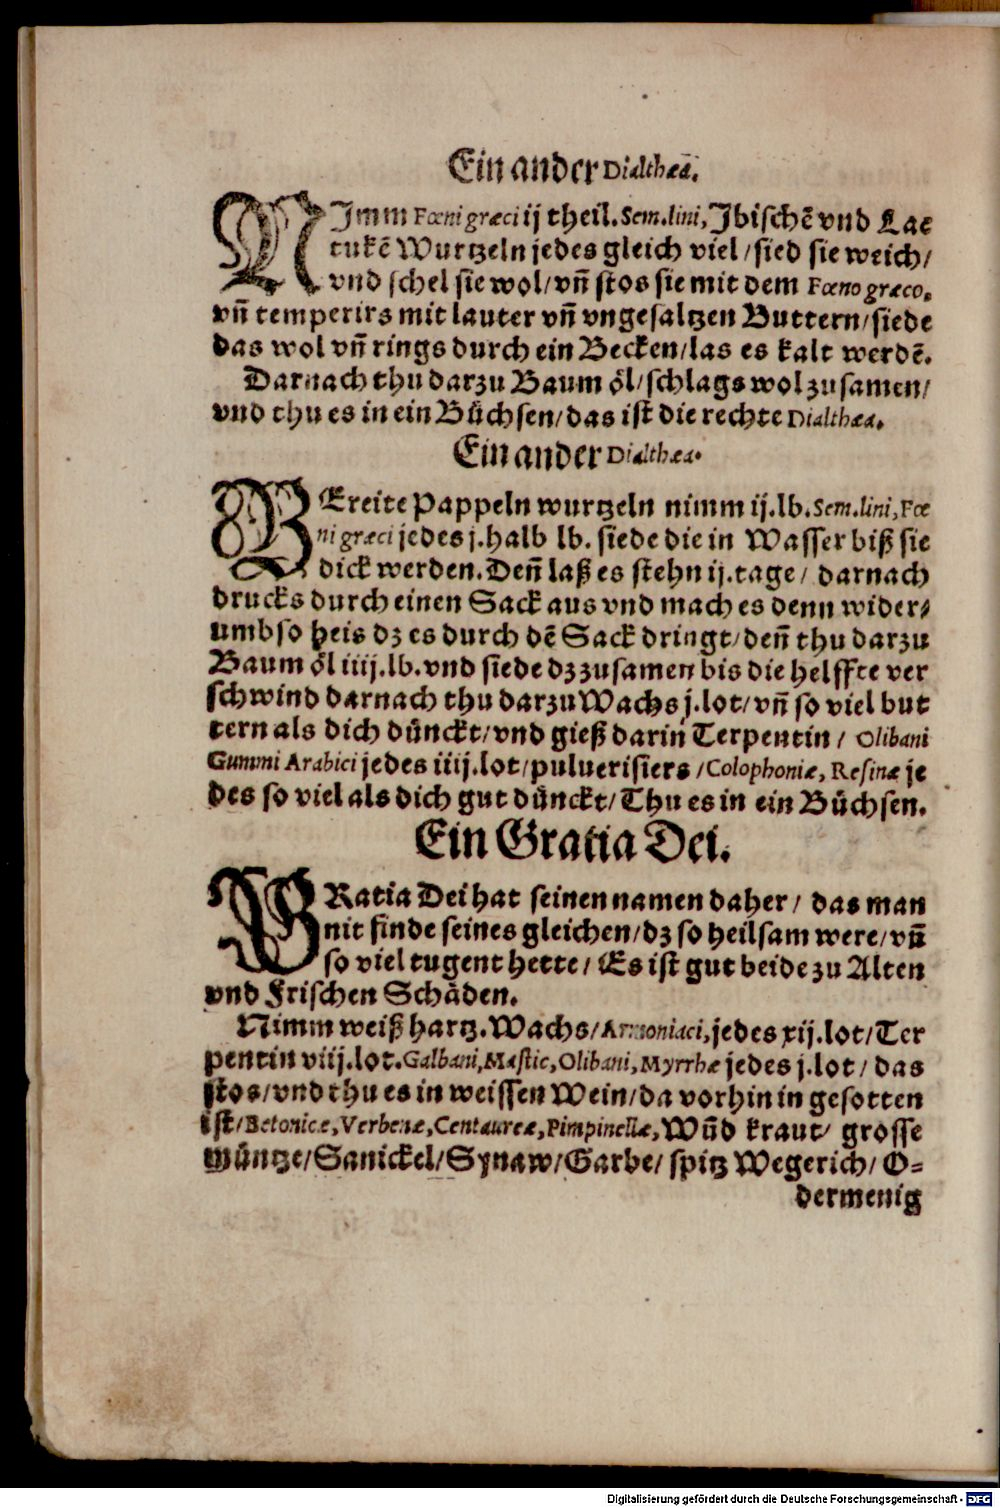 Ein ander Dialthæa.
NImm Fœni græci ij theil. Sem. lini, Ibischē vnd Lac
tukē Wurtzeln jedes gleich viel / sied sie weich /
vnd schel sie wol / vn̄ stos sie mit dem Fœno græco.
vn̄ temperirs mit lauter vn̄ vngesaltzen Buttern / siede
das wol vn̄ rings durch ein Becken / las es kalt werdē.
Darnach thu darzu Baum öl / schlags wol zusamen /
vnd thu es in ein Büchsen / das ist die rechte Dialthæa.
Ein ander Dialthæa.
BEreite Pappeln wurtzeln nimm ij. lb. Sem. lini, Fœ
ni græci jedes j. halb lb. siede die in Wasser biß sie
dick werden. Den̄ laß es stehn ij. tage / darnach
drucks durch einen Sack aus vnd mach es denn wider⸗
umb so heis dz es durch dē Sack dringt / den̄ thu darzu
Baum öl iiij. lb. vnd siede dz zusamen bis die helffte ver
schwind darnach thu darzu Wachs j. lot / vn̄ so viel but
tern als dich dünckt / vnd gieß darin Terpentin / Olibani
Gummi Arabici jedes iiij. lot / puluerisiers / Colophoniæ, Resinæ je
des so viel als dich gut dünckt / Thu es in ein Büchsen.
Ein Gratia Dei.
GRatia Dei hat seinen namen daher / das man
nit finde seines gleichen / dz so heilsam were / vn̄
so viel tugent hette / Es ist gut beide zu Alten
vnd Frischen Schäden.
Nimm weiß hartz. Wachs / Armoniaci, jedes xij. lot / Ter
pentin viij. lot. Galbani, Mastic, Olibani, Myrrhæ jedes j. lot / das
stos / vnd thu es in weissen Wein / da vorhin in gesotten
ist / Betonicæ, Verbenæ, Centaureæ, Pimpinellæ, Wūd kraut / grosse
Müntze / Sanickel / Synaw / Garbe / spitz Wegerich / O⸗
dermenig
Digitalisierung gefördert durch die Deutsche Forschungsgemeinschaft - DFG